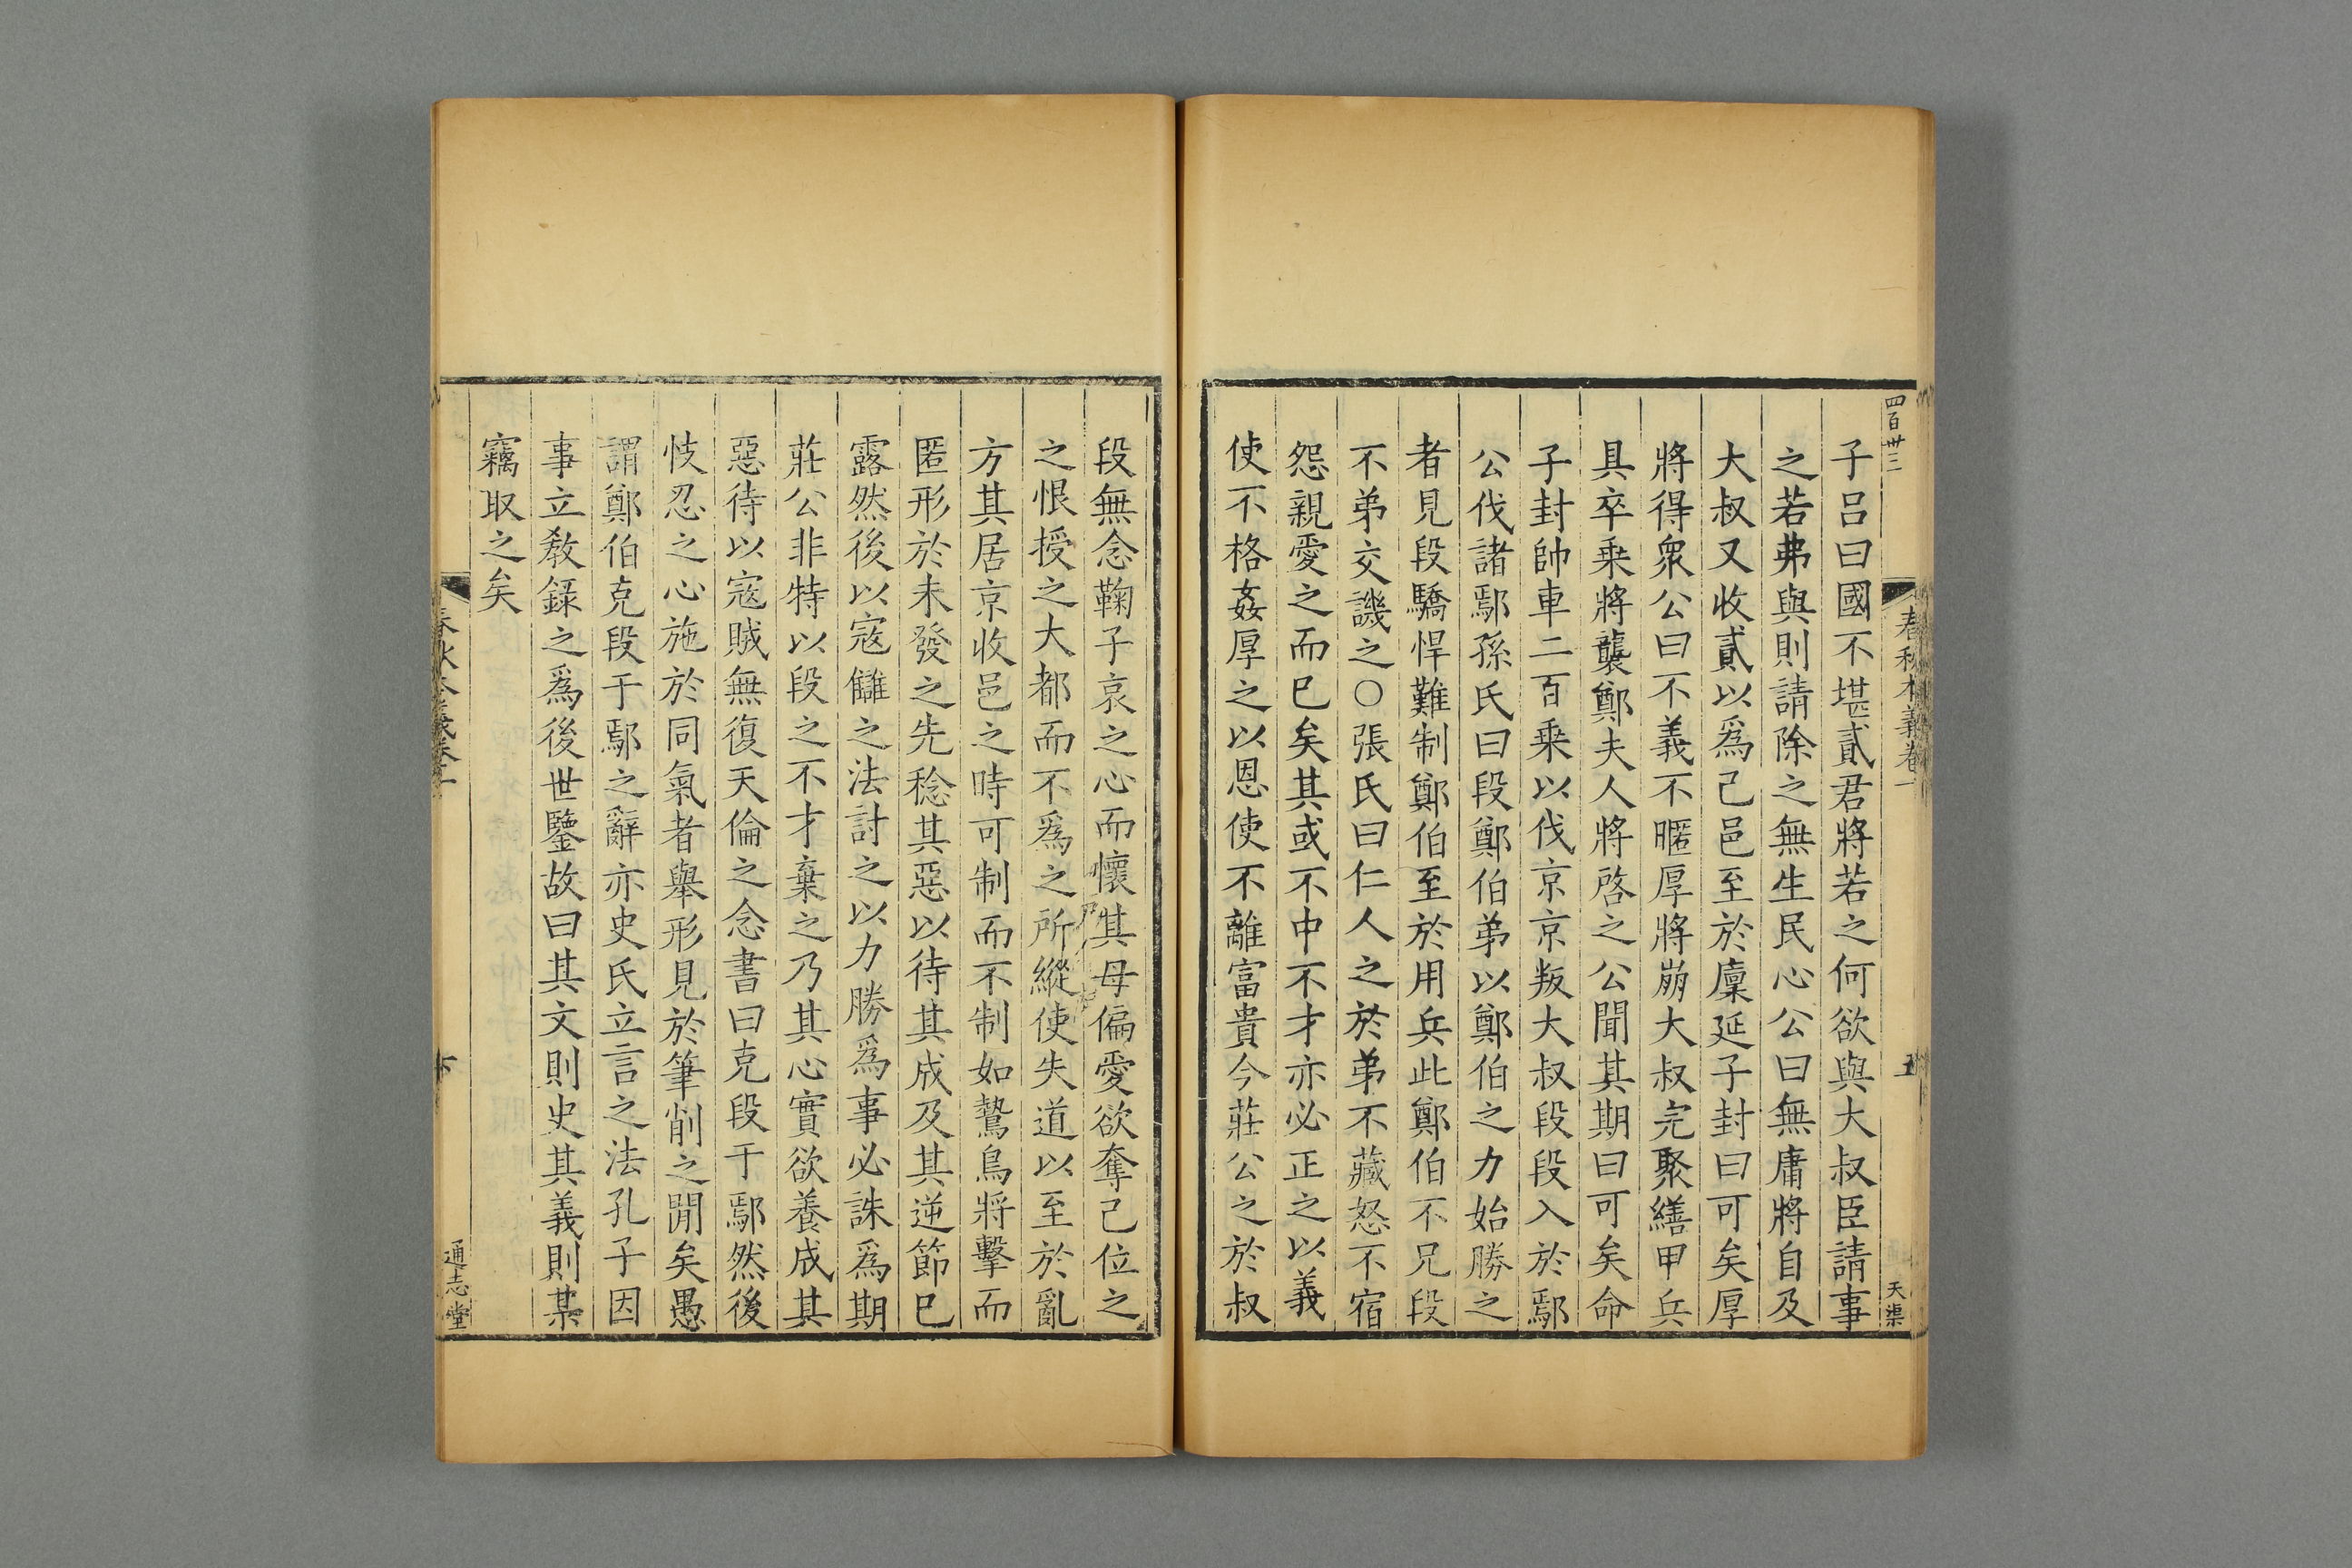 四百卅三
春秋本義卷一
五
天渠
子呂曰國不堪貳君將若之何欲與大叔臣請事
之若弗與則請除之無生民心公曰無庸將自及
大叔又收貳以爲己邑至於廩延子封曰可矣厚
將得衆公曰不義不暱厚將崩大叔完聚繕甲兵
具卒乗將襲鄭夫人將啓之公聞其期曰可矣命
子封帥車二百乗以伐京京叛大叔段段入於鄢
公伐諸鄢孫氏曰段鄭伯弟以鄭伯之力始勝之
者見段驕悍難制鄭伯至於用兵此鄭伯不兄段
不弟交譏之○張氏曰仁人之於弟不藏怒不宿
怨親愛之而已矣其或不中不才亦必正之以義
使不格姦厚之以恩使不離富貴今莊公之於叔
段無念鞠子哀之心而懷其母偏愛欲奪己位之
之恨授之大都而不爲之所縱使失道以至於亂
方其居京收邑之時可制而不制如鷙鳥將擊而
匿形於未發之先稔其惡以待其成及其逆節已
露然後以寇讎之法討之以力勝爲事必誅爲期
莊公非特以段之不才棄之乃其心實欲養成其
惡待以寇賊無復天倫之念書曰克段于鄢然後
忮忍之心施於同氣者舉形見於筆削之閒矣愚
謂鄭伯克段于鄢之辭亦史氏立言之法孔子因
事立敎錄之爲後世鑒故曰其文則史其義則某
竊取之矣
通志堂